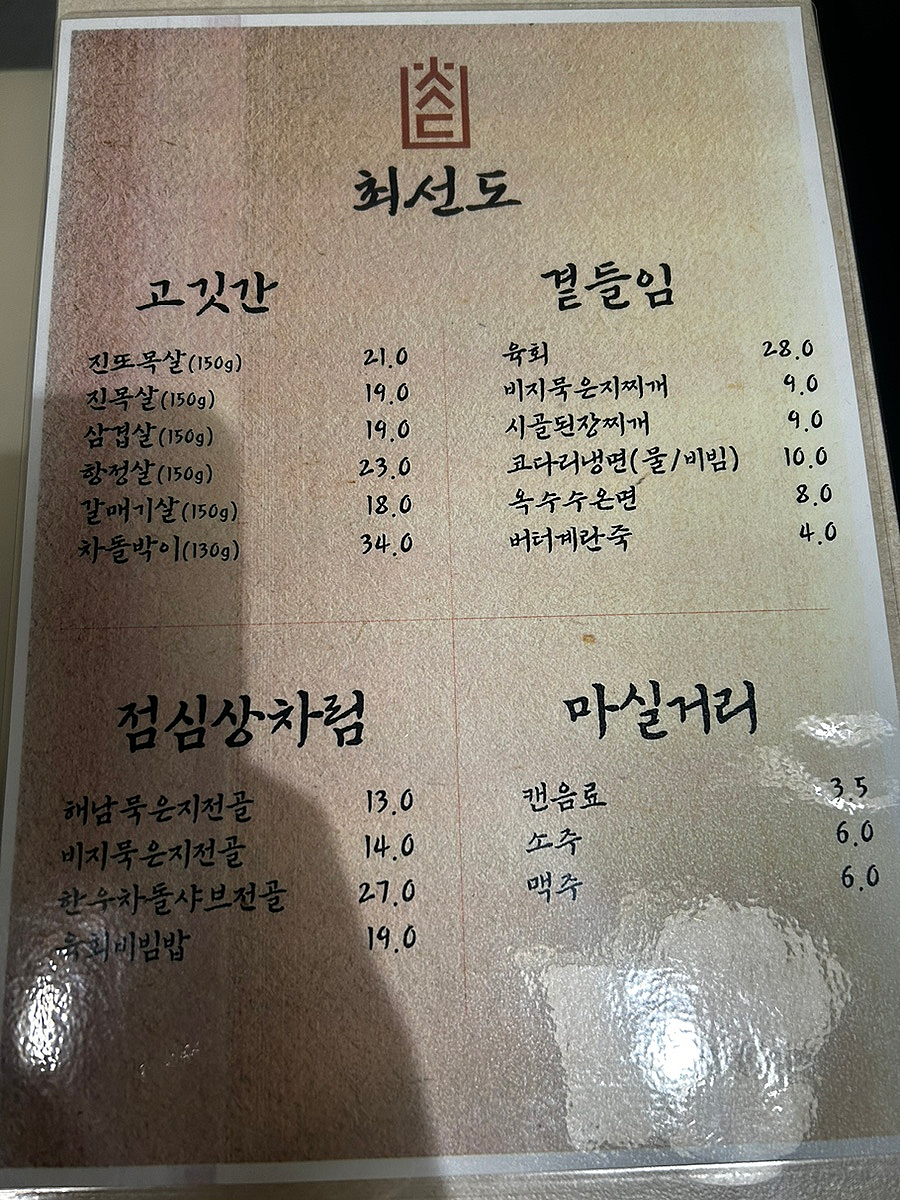 최선도
고깃간
진또목살(150g) 21.0
진목살(150g) 19.0
삼겹살(150g) 19.0
항정살(150g) 23.0
갈매기살(150g) 18.0
차돌박이(130g) 34.0
곁들임
육회 28.0
비지묵은지찌개 9.0
시골된장찌개 9.0
코다리냉면(물/비빔) 10.0
옥수수온면 8.0
버터계란죽 4.0
점심상차림
해남묵은지전골 13.0
비지묵은지전골 14.0
한우차돌샤브전골 27.0
육회비빔밥 19.0
마실거리
캔음료 3.5
소주 6.0
맥주 6.0